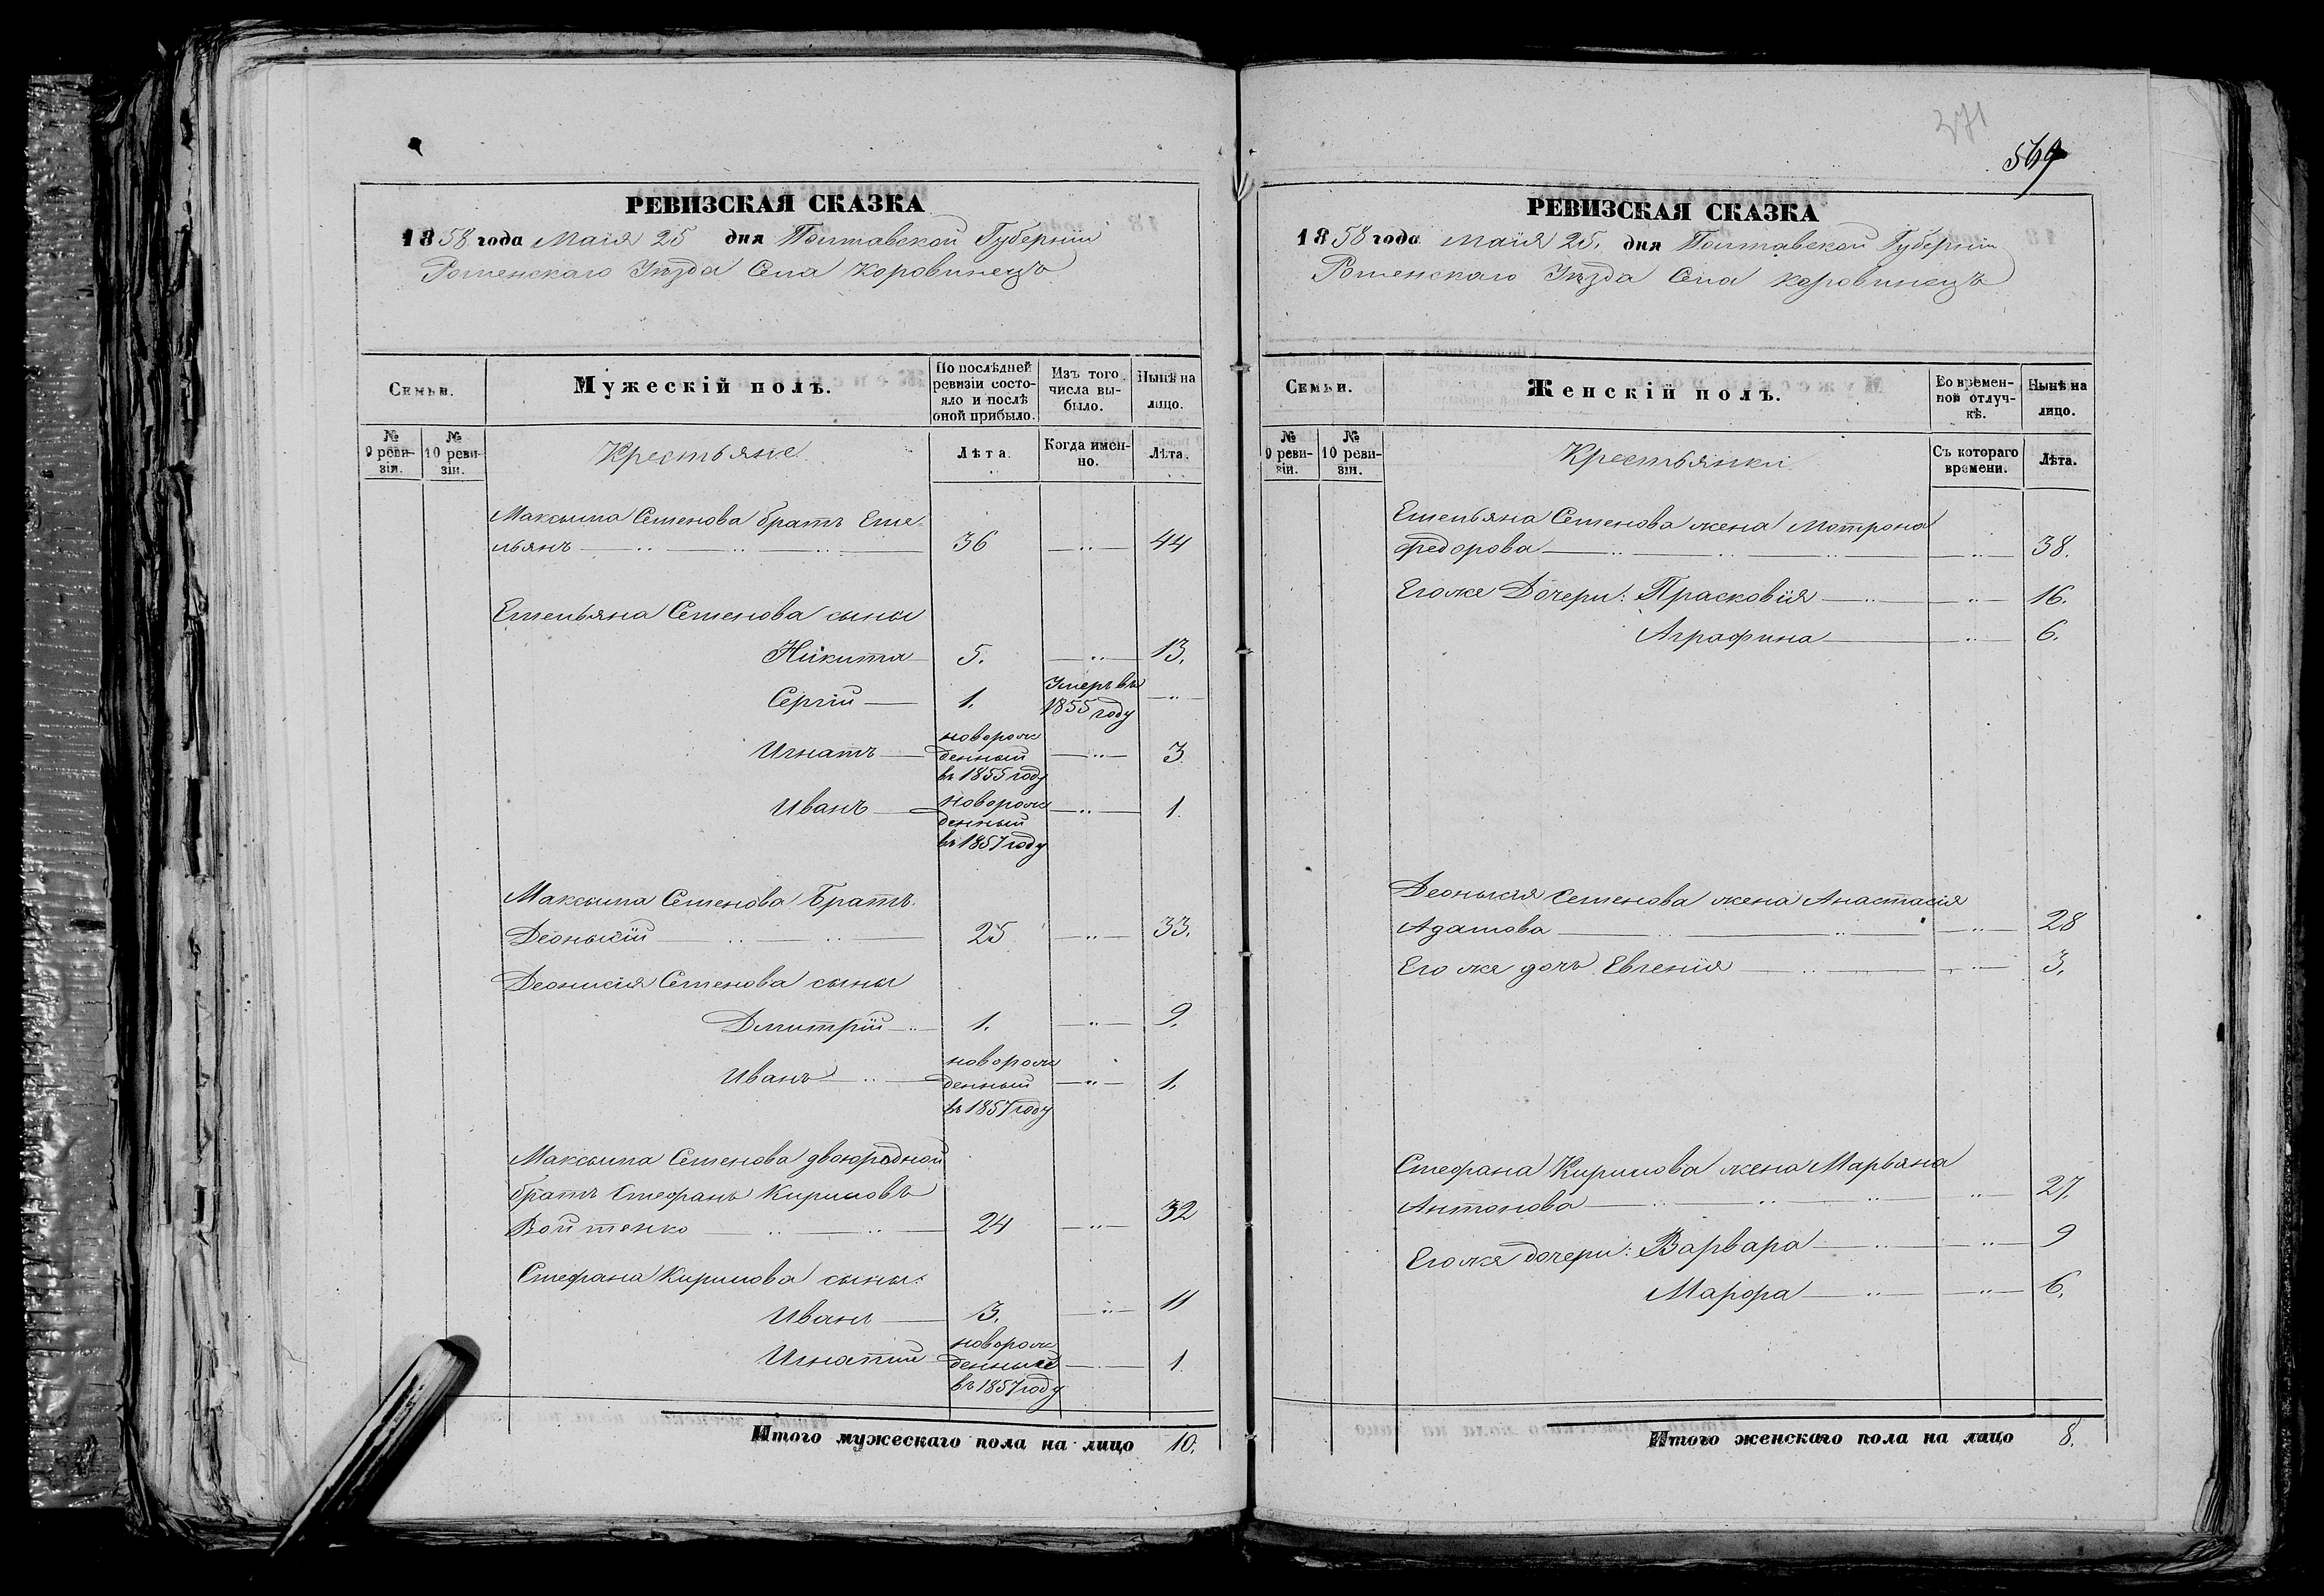 РЕВИЗСКАЯ СКАЗКА
1858 года Маія 25 дня Полтавской Губерніи
Роменскаго Уѣзда Села Коровинецъ
Семьи.
Мужескій полъ.
По послѣдней ревизіи состояло и послѣ оной прибыло.
Изъ того числа выбыло.
Нынѣ на лицо.
№ 9 ревизіи.
№ 10 ревизіи.
Крестьяне
Лѣта.
Когда именно.
Лѣта.
Максыма Семенова братъ Еме-
льянъ 36 44
Емельяна Семенова сыны
Никита 5. 13.
Сергій 1. Умеръ въ 1855 году
Игнатъ новорожденный въ 1855 году 3
Иванъ новорожденный въ 1857 году 1.
Максыма Семенова Братъ
Деонысій 25 33.
Деонисія Семенова сыны
Дмитрій 1. 9.
Иванъ новорожденный въ 1857 году 1.
Максыма Семенова двоюродной
братъ Стефанъ Кириловъ
Войтенко 24 32
Стефана Кирилова сыны:
Иванъ 3. 11
Игнатій новорожденный въ 1857 году 1.
Итого мужескаго пола на лицо 10.
371
569
РЕВИЗСКАЯ СКАЗКА
1858 года Маія 25. дня Полтавской Губерніи
Роменскаго Уѣзда Села Коровинецъ
Семьи.
Женскій полъ.
Во временной отлучкѣ.
Нынѣ на лицо.
№ 9 ревизіи.
№ 10 ревизіи.
Крестьянки
Съ котораго времени.
Лѣта.
Емельяна Семенова жена Мотрона
Федорова 38.
Его же Дочери: Прасковія 16.
Аграфина 6.
Деонысія Семенова жена Анастасія
Адамова 28
Его же дочь Евгенія 3.
Стефана Кирилова жена Марьяна
Антонова 27.
Его же дочери: Варвара 9
Марфа 6.
Итого женскаго пола на лицо 8.